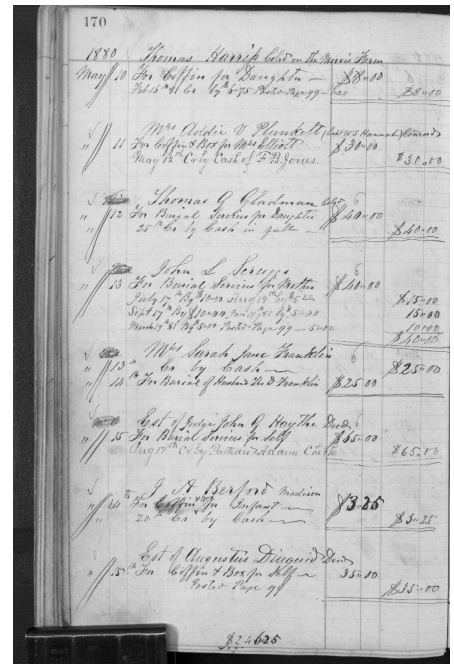 170
1880 Thomas Harris Cold on the Morris Farm
May 10 For Coffin for Daughter — $8"00
Feb 18th 81 Cr by 6-75 Posted Page 99 — $8"00
Mrs Addie V Plunkett
" 11 For Coffin & Box for Mrs Elliott $30"00
May 12th Cr by Cash of F. B. Jones. $30"00
Thomas G Gladman Cold
" 12 For Burial Services for Daughter $40"00
" 25th Cr by Cash in full — $40"00
John L Scruggs
" 13 For Burial Services for Mother $40"00
July 17th By $10"00 Aug 19th by $5 $15"00
Sept 17th By $10"00, Jan 18th 81 by 5"00 15"00
March 19th 81 By 5"00 Posted Page 99 — 5"00 10"00
$40"00
Mrs Sarah Jane Franklin
" 13th Cr by Cash — $25"00
" 14th For Burial of Husband Thos D Franklin $25"00
Est of Judge John G Haythe Decd
" 15 For Burial Services for Self $65"00
Aug 17th Cr by Adams Check $65"00
J A Berford Madison
" 14th For Coffin & Box for Infant — $3"25
" 20th Cr by Cash — $3"25
Est of Augustus Decd
" 15th For Coffin & Box for Self — 35"00
Posted Page 99 $35"00
$246"25